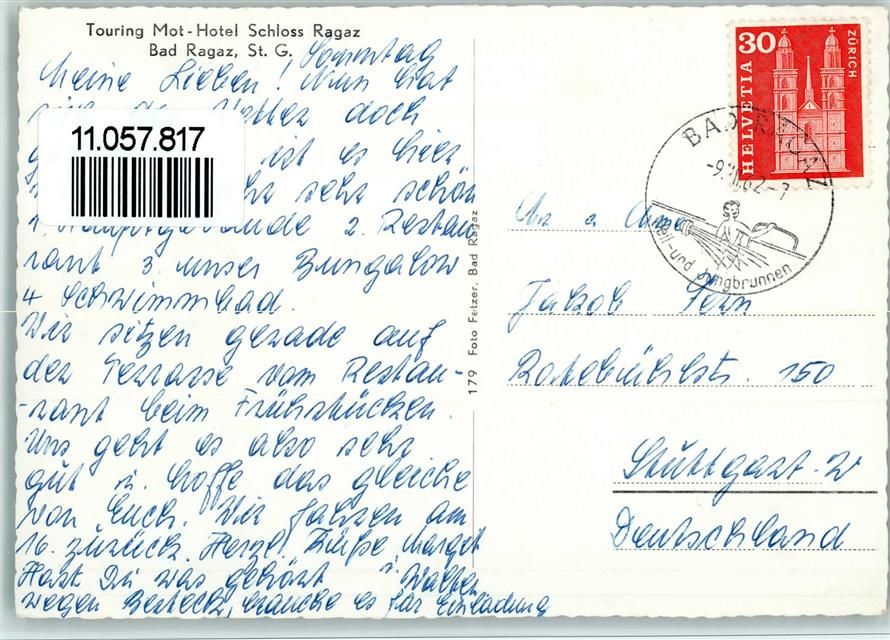 Touring Mot-Hotel Schloss Ragaz
Bad Ragaz, St. G.
Sonntag
Meine Lieben! Nun hat
doch
11.057.817
ist es hier
sehr schön
1. Hauptgebäude 2. Restau
rant 3. unser Bungalow
4 Schwimmbad.
Wir sitzen gerade auf
der Terrasse vom Restau-
-rant beim Frühstücken.
Uns geht es also sehr
gut u. hoffe das gleiche
von Euch. Wir fahren am
16. zurück. Herzl. Grüße Margot
Hast Du was gehört u. Walter
wegen Besteck, brauche es für Einladung
179 Foto Fetzer, Bad Ragaz
30
HELVETIA
ZÜRICH
BAD RAGAZ
Heil- und Jungbrunnen
Jakob
Rotebühlstr. 150
Stuttgart-W
Deutschland